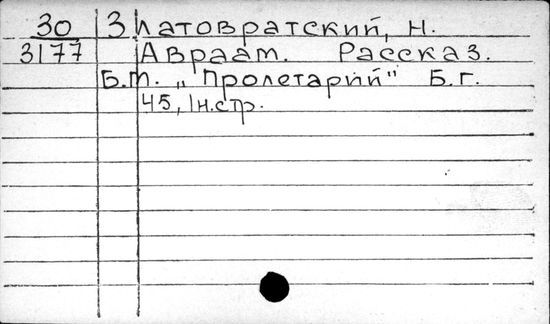 30 Златовратский, Н.
3177 Авраам. Рассказ.
Б.м. „Пролетарий" Б.г.
45, 1н.стр.